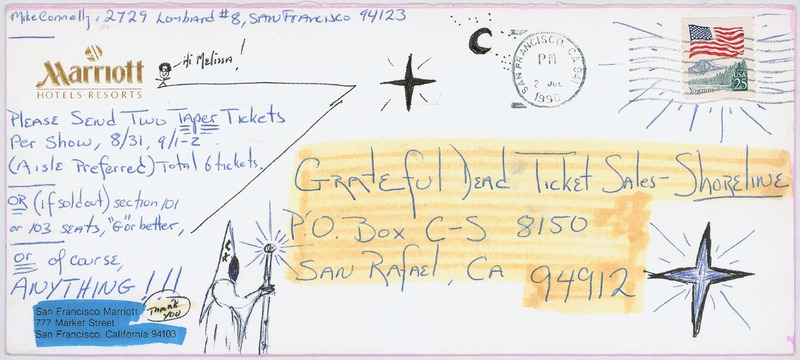 Mike Connelly, 2729 Lombard #8, San Francisco 94123
Marriott
HOTELS·RESORTS
Hi Melissa!
SAN FRANCISCO, CA 941
PM
2 JUL
1990
USA
25
Yosemite
Please Send Two Taper Tickets
Per Show, 8/31, 9/1-2.
(Aisle Preferred) Total 6 tickets.
OR (if sold out) section 101
or 103 seats, "G" or better,
or of course,
ANYTHING!!!
THANK
YOU
San Francisco Marriott
777 Market Street
San Francisco, California 94103
Grateful Dead Ticket Sales- Shoreline
P.O. Box C-S 8150
San Rafael, CA 94912